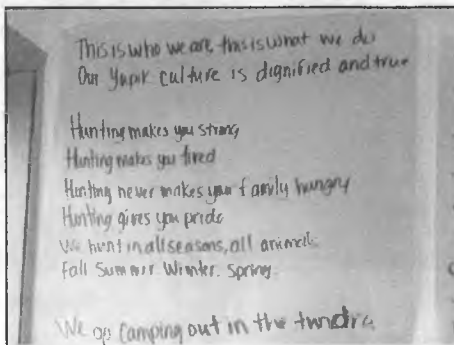 This is who we are, this is what we do
Our Yupik culture is dignified and true
Hunting makes you strong
Hunting makes you tired
Hunting never makes your family hungry
Hunting gives you pride
We hunt in all seasons, all animals.
Fall Summer. Winter. Spring.
We go camping out in the tundra